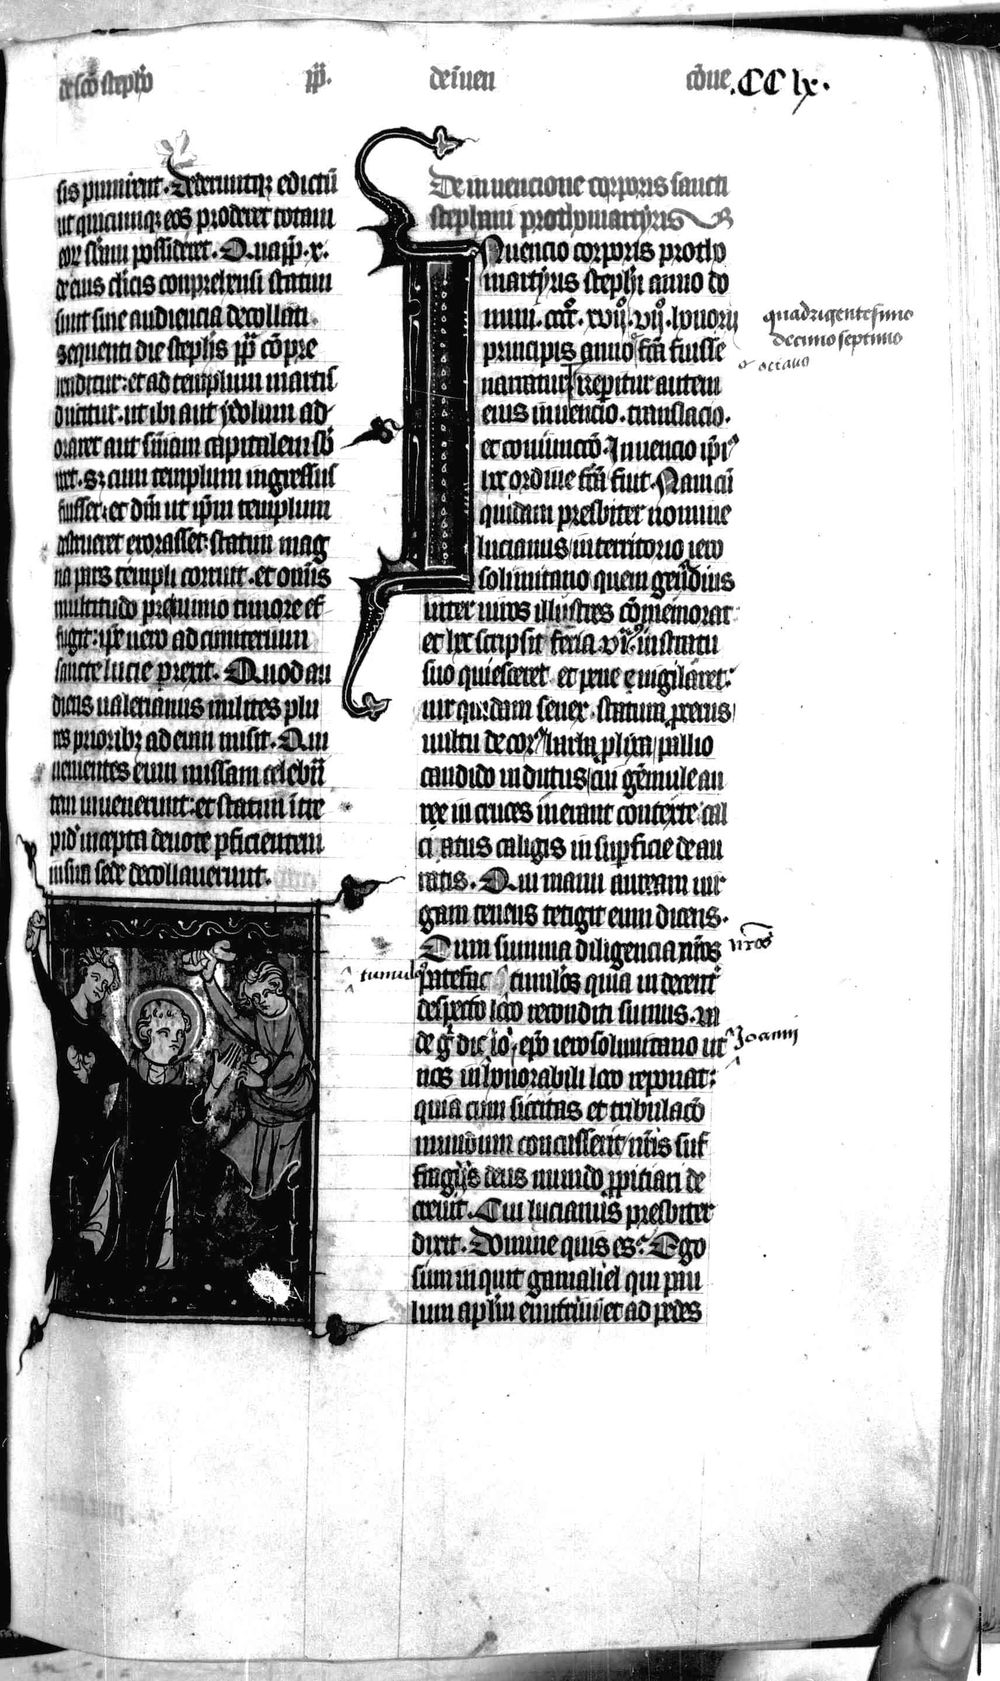 de sco stepho pp. de inuen cōue .CC lx.
sis punirent. Dederuntq; edictū
ut quicunq; eos proderet totam
eor sbam possideret. Quapp. x.
de eius clicis conprehensi statim
sunt sine audiencia decollati.
Sequenti die stephs pp cōpre
henditur: et ad templum martis
ducitur. ut ibi aut ydolum ad
oraret aut sniam capitalem sb
iret. Sz cum templum ingressus
fuisset. et dm ut ipm templum
destrueret exorasset: statim mag
na pars templi corruit. et omis
multitudo pre nimio timore ef
fugit: ipe uero ad cimiterium
sancte lucie perexit. Quod au
diens ualerianus milites plu
res prioribz ad eum misit. Qui
uenientes eum missam celebrā
tem inuenerunt: et statim ītre
pid incepta deuote pficientem
in sua sede decollauerunt.
De inuencione corporis sancti
stephani prothomartyris
Inuencio corporis protho
martyris stephi anno do
mini. cccc. xvij. vij. honorij
principis anno fca fuisse
narratur repitur autem
eius inuencio. translacio.
et coniunccō. Inuencio ipi
hc ordine fca fuit. Nam cū
quidam presbiter nomine
lucianus in territorio iero
solimitano quem gennadius
inter uiros illustres cōmemorat
et hec scripsit feria. vi. in stratu
suo quiesceret et pene euigilaret:
uir quidam senex. statura procerus
uultu decor barba plixa pallio
candido indutus cui gēmule au
ree in cruces inerant contexte cal
ciatus caligis in supficie deau
ratis. Qui manu auream uir
gam tenens tetigit eum dicens.
Cum summa diligencia nros
patefac tumlos quia in decent
despecto loco reconditi sumus. Va
de g dic io. epo ierosolimitano ut
nos in honorabili loco reponat:
quia cum siccitas et tribulacō
mundum concusserit nris suf
fragijs deus mundo ppiciari de
creuit. Cui lucianus presbiter
dixit. Domine quis es? Ego
sum inquit gamaliel qui pau
lum aplm enutriui et ad pedes
quadrigentesimo
decimo septimo
octauo
nros
tumulos
Joanni